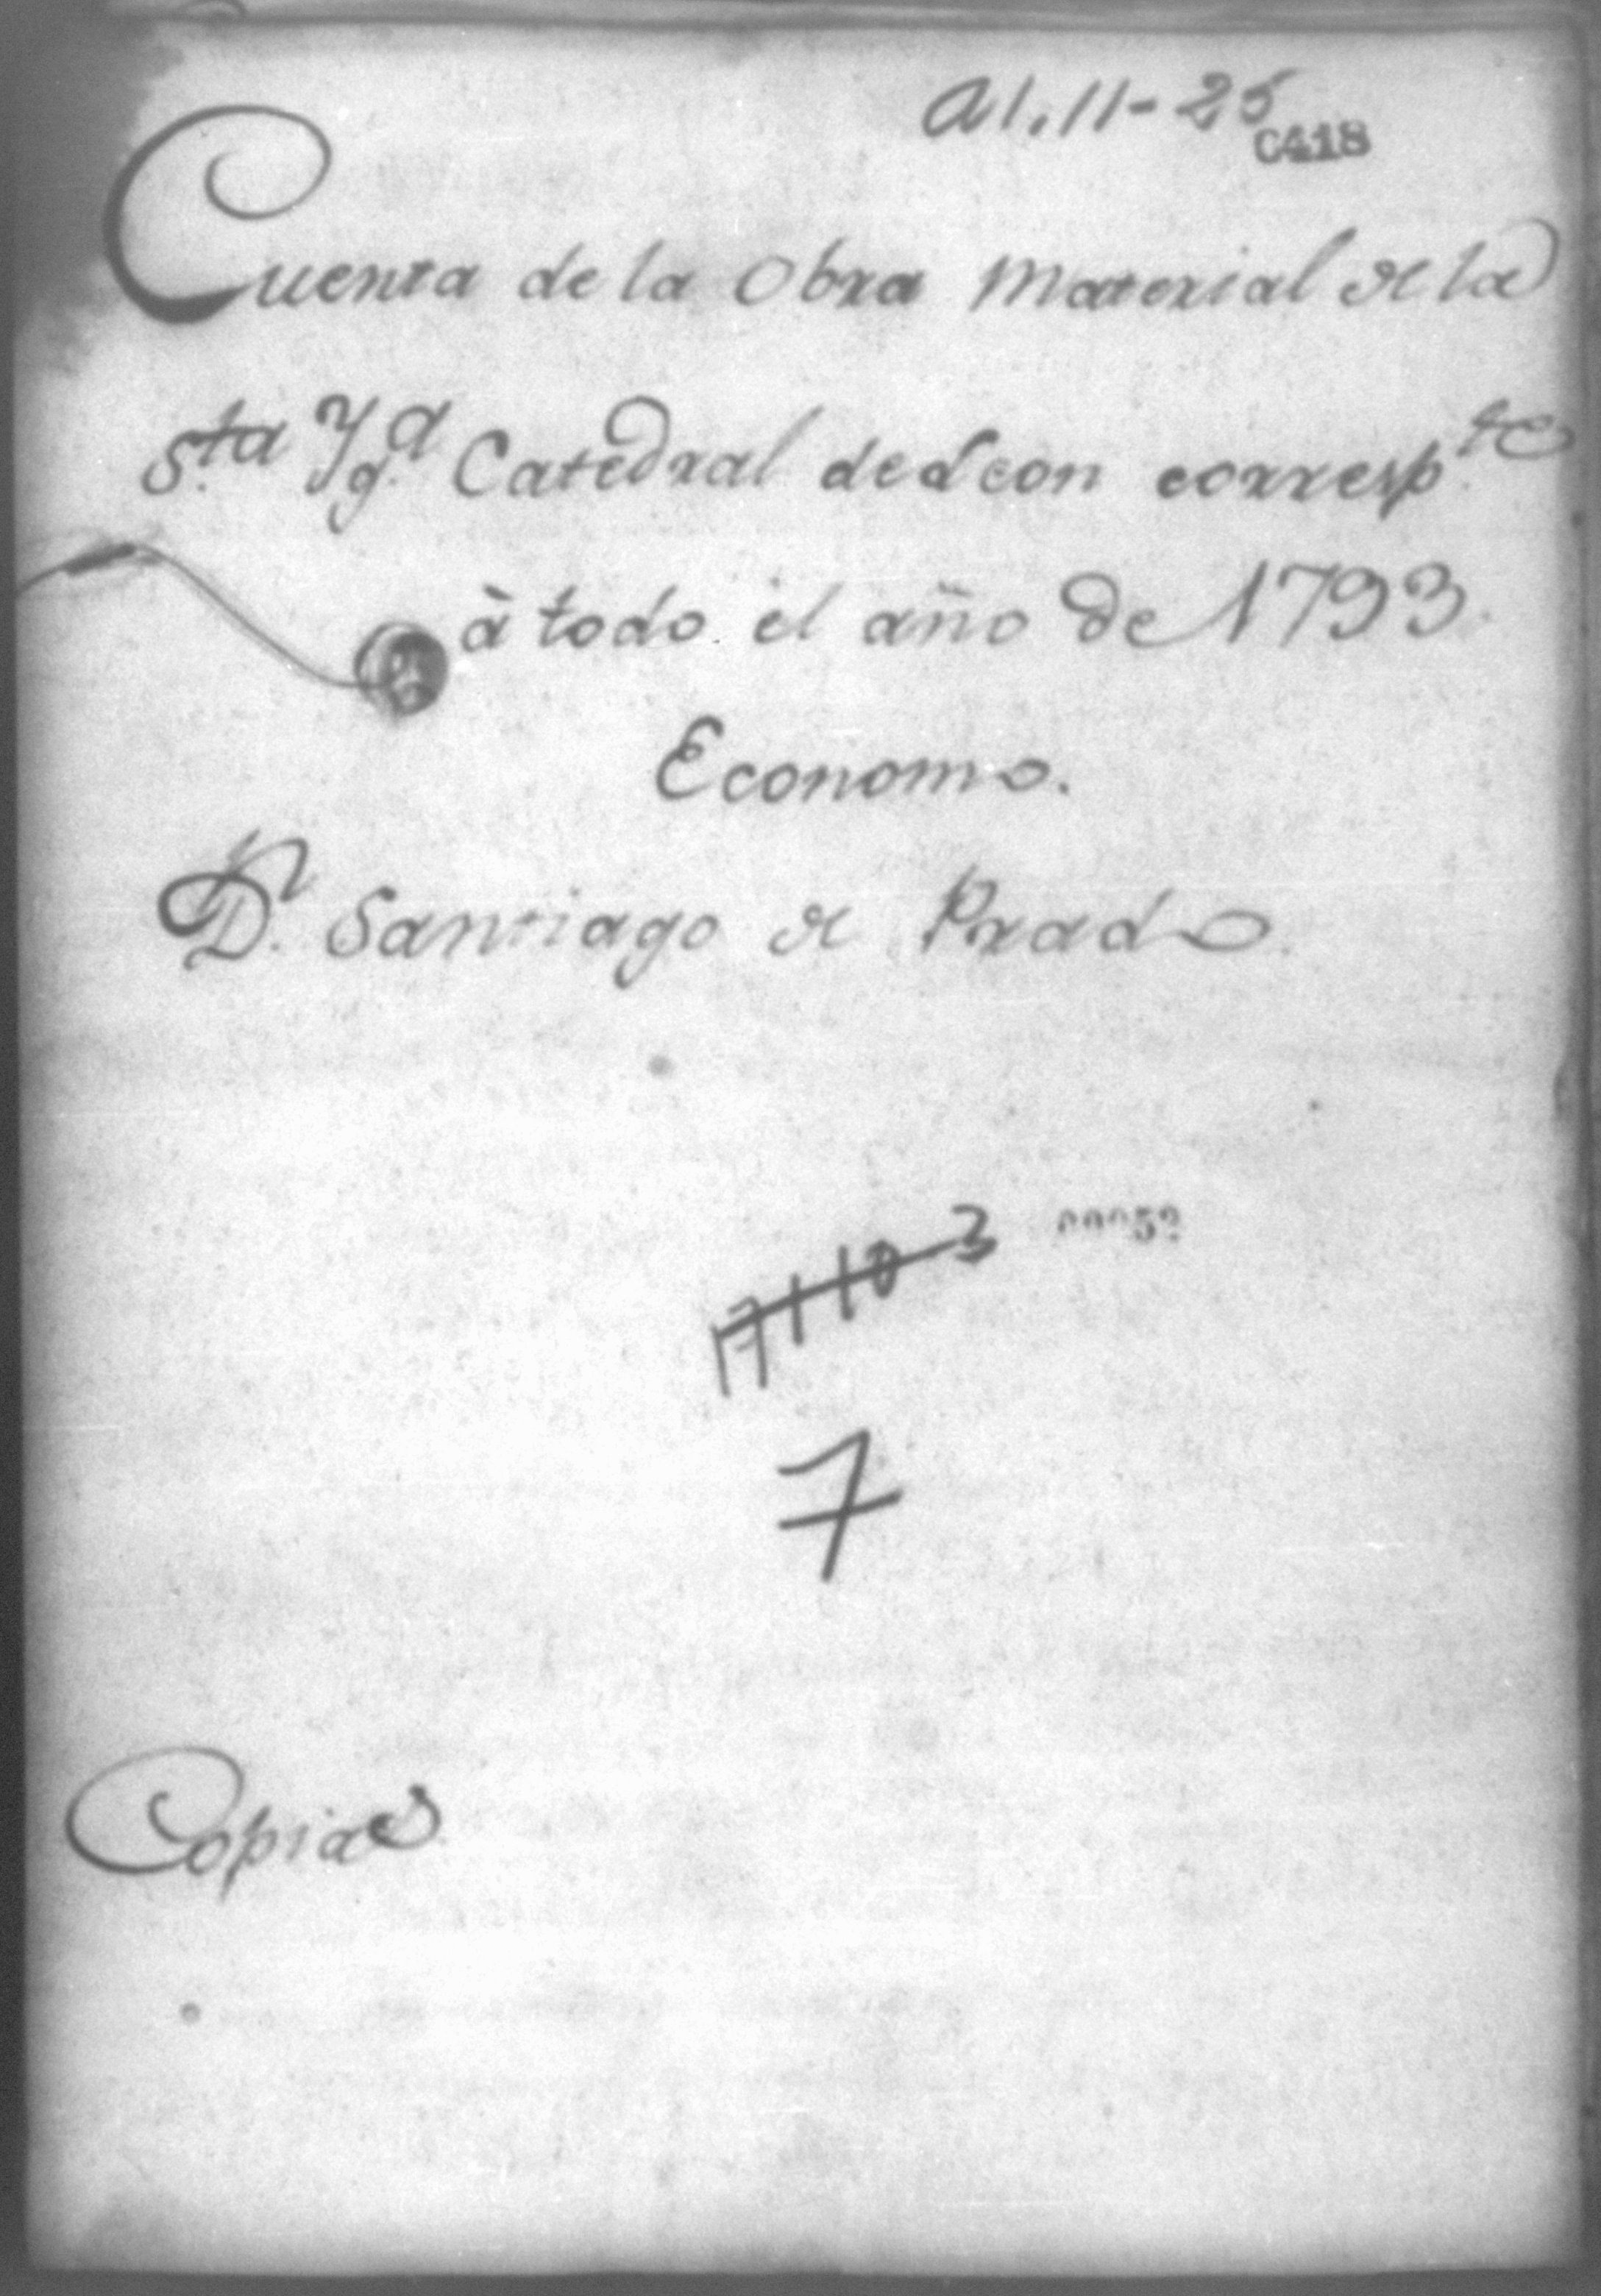 A1.11-25
C418
Cuenta de la Obra Material de la
S.ta Yg.a Catedral de Leon corresp.te
à todo el año de 1793.
Economo.
D.n Santiago de Prado.
7
Copia